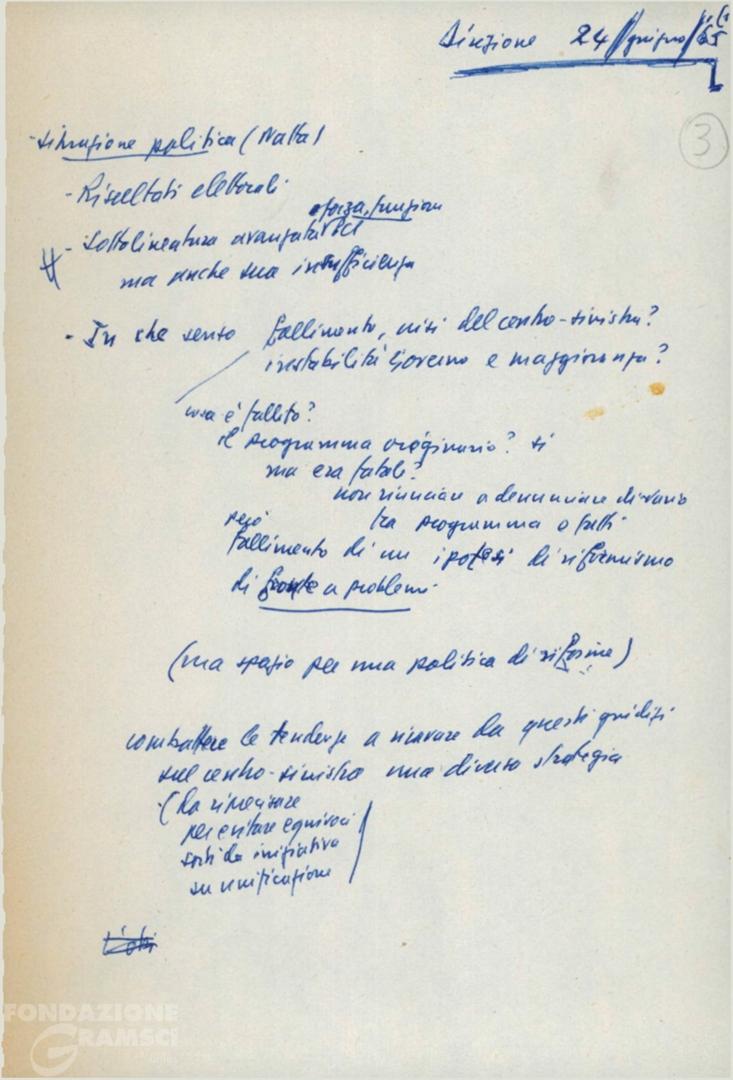 Direzione 24 giugno 65
3
- situazione politica (Natta)
- Risultati elettorali
e forza, funzioni
- Sottolineatura avanzata PCI
ma anche sua insufficienza
- In che senso fallimento, crisi del centro-sinistra?
instabilità Governo e maggioranza?
cosa è fallito?
il programma originario? si
ma era fatale?
non rinunciare a denunciare divario
tra programma e fatti
però
fallimento di un ipotesi di riformismo
di fronte a problemi
(ma spazio per una politica di riforme)
combattere le tendenze a ricavare da questi giudizi
sul centro-sinistra una diversa strategia
(Da precisare
per evitare equivoci
sorti da iniziativa
su unificazione)
FONDAZIONE
GRAMSCI